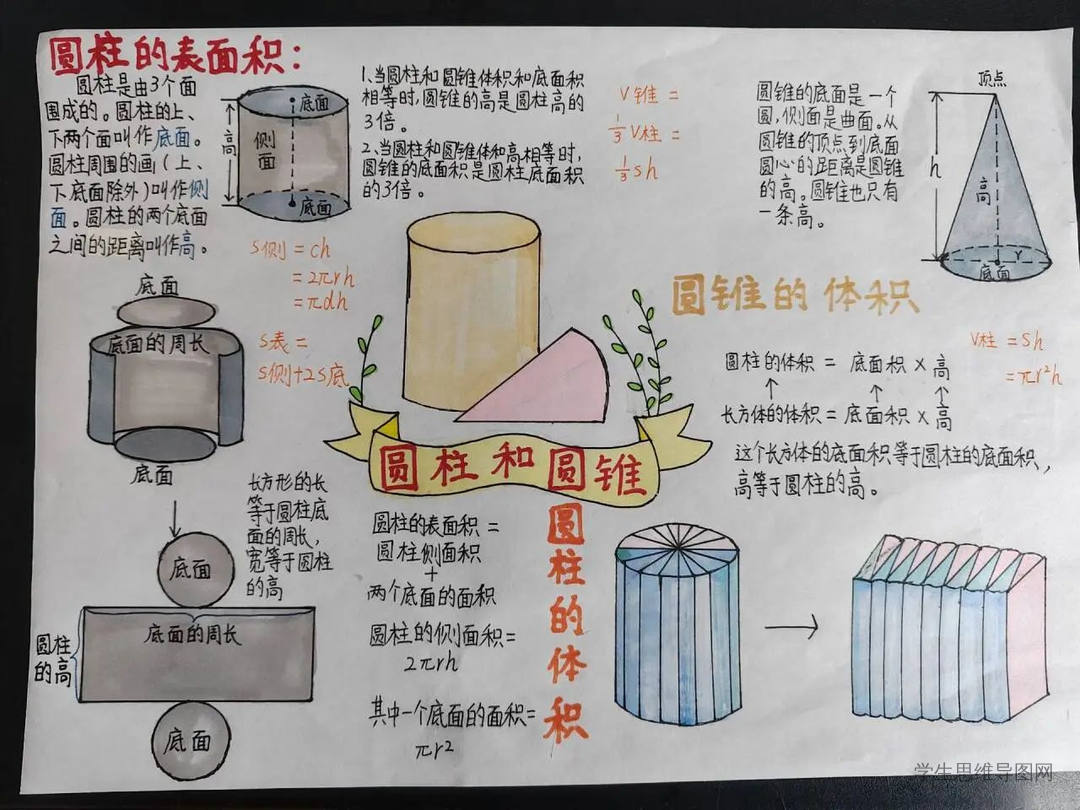 圆柱的表面积：
圆柱是由3个面
围成的。圆柱的上、
下两个面叫作底面。
圆柱周围的画（上、
下底面除外）叫作侧
面。圆柱的两个底面
之间的距离叫作高。
底面
侧
面
高
底面
S侧=ch
=2πrh
=πdh
S表=
S侧+2S底
1、当圆柱和圆锥体积和底面积
相等时，圆锥的高是圆柱高的
3倍。
2、当圆柱和圆锥体和高相等时，
圆锥的底面积是圆柱底面积
的3倍。
V锥=
1/3V柱=
1/3sh
圆锥的底面是一个
圆，侧面是曲面。从
圆锥的顶点到底面
圆心的距离是圆锥
的高。圆锥也只有
一条高。
顶点
h
高
r
底面
圆锥的体积
V柱=Sh
=πr²h
圆柱的体积=底面积×高
↑ ↑ ↑
长方体的体积=底面积×高
这个长方体的底面积等于圆柱的底面积，
高等于圆柱的高。
底面
底面的周长
底面
长方形的长
等于圆柱底
面的周长，
宽等于圆柱
的高
底面
底面的周长
圆柱
的高
底面
圆柱和圆锥
圆柱的表面积=
圆柱侧面积
+
两个底面的面积
圆柱的侧面积=
2πrh
其中一个底面的面积=
πr²
圆柱的体积
学生思维导图网